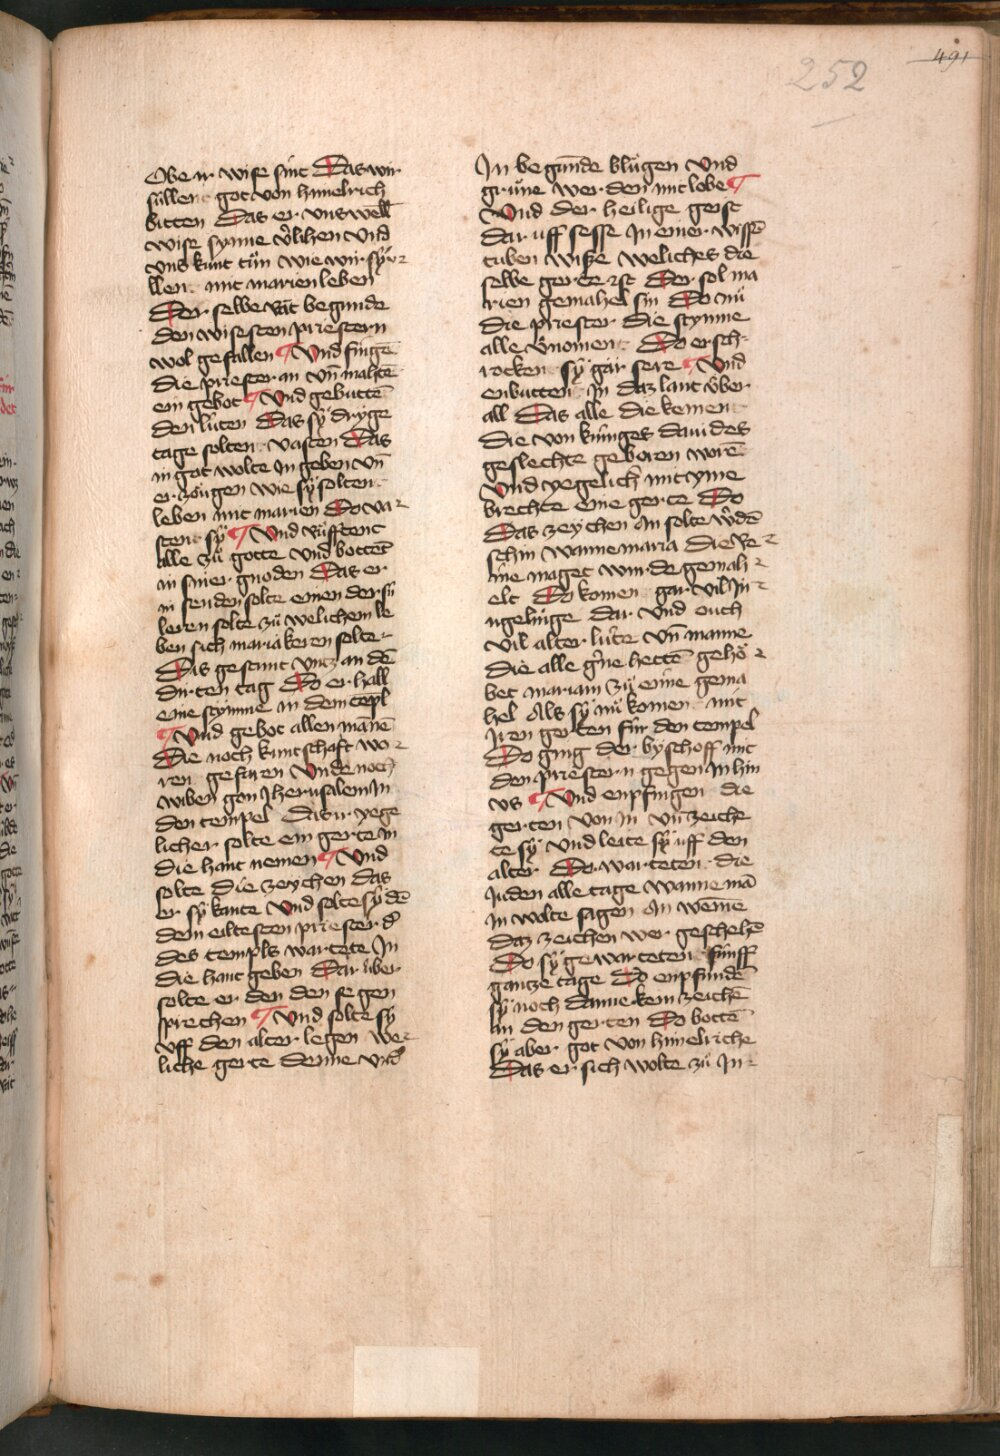 252
491
Obe ir wise sint Das wir
süllent got von himelrich
bitten Das er vns well
wise synne v̉lihen vnd
vns kunt tün wie wir sÿ̈
llen mit marien leben
Der selbe rǎt begunde
den wisesten priestern
wol gefallen ¶ Vnd fingē
die priester an vn̄ mahtē
ein gebot ¶ Vnd gebuttē
den lüten Das sÿ dryge
tage solten vasten Das
in got wolte In geben vn̄
erzöugen wie sÿ solten
leben mit marien Do va
stent sÿ ¶ Vnd rüfftent
alle zü gotte vnd bottēt
in siner gnoden Das er
in senden solte einen der sü
leren solte zü welichem le
ben sich maria keren solte
Dis gestunt vntz an dē
dirten tag Do erhall
eine stymme in dem tēpl
¶ Vnd gebot allen mānē
Die noch kuntschaft wo
ren gefaren Vnde noch
wiben gon Jherusalem In
den tempel Das ir yege
licher solte ein gerte in
die hant nemen ¶ Vnd
solte die zeychen das
er sÿ kante Vnd solte sÿ dē
dem eiltesten priester d̉
des templs wartete In
die hant geben Dar über
solte er den den segen
sprechen ¶ Vnd solte sÿ
vff den alter legen We
liche gerte denne vnd̉
In begunde blügen vnd
grüne werden mit lobe ¶
Vnd der heilige geist
dar uff sesse In einer wissē
tuben wiße weliches die
selbe gerte ist Der sol ma
rien gemahel sin Do nü
die priester die stymme
alle v̉nomen Do ersch
rocken sÿ gar sere ¶ Vnd
enbutten In daz lant über
all Das alle die kement
die von küniges dauides
geslechte geboren worē
Vnd yegelich mit yme
brechte eine gerte Do
Das zeychen An solte w̉dē
schin wanne maria die re
ine maget wurde gemah
elt Do komen gar vil Jn
ngelinge dar Vnd ouch
vil alter lüte vn̄ manne
die alle g̉ne hettē gehö
bet mariam zü eine gema
hel Als sÿ nü komen mit
Iren gerten für den tempel
Do ging der byschoff mit
den priestern gegen In hin
vs ¶ Vnd enpfingen die
gerten von In vn̄ zeiche
te sÿ vnd leite sÿ uff den
alter Do warteten die
Juden alle tage wanne mā
In wolte sagen An weme
daz zeichen wer geschehē
Do sÿ gewarteten fünff
gantze tage Do enpfundē
sÿ noch danne kein zeichē
An den gerten Do bottē
sÿ aber got von himelriche
Das er sich wolte zü In